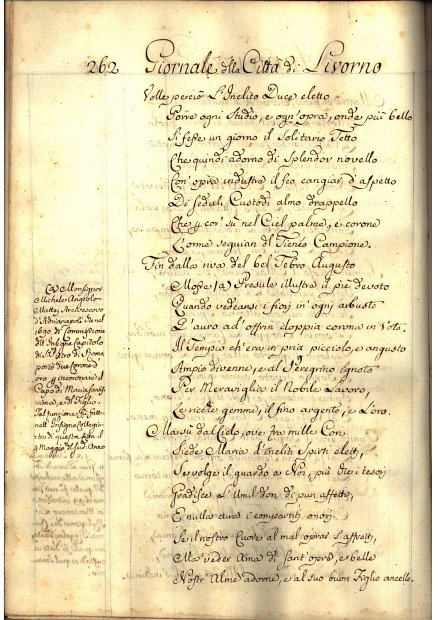 262 Giornale della Città di Livorno
Volle perciò L'Inclito Duce eletto
Porre ogni Studio, e ogn'opra, onde più bello
Si fesse un giorno il Solitario Tetto
Che quindi adorno di Splendor novello
Con' opra industre il fea cangiar d'aspetto
Di fedeli Custodi almo drappello
Che cor' sù nel Ciel palme, e corone
L'orme seguian del Campione.
Fin dalla riva del bel Tebro Augusto
Mosse (a) Presule illustre il piè devoto
Quando vedeansi i fiori in ogni arbusto
E l'auro ad offrir doppia corona in Voto.
Il Tempio ch'era in pria picciolo, e angusto
Ampio divenne, e al Peregrino ignoto
Per Meraviglia il Nobile Lavoro,
Le ricche gemme, il fino argento, e L'oro.
Ma sù dal Cielo, ove fra mille
Siede Maria d'incliti Spirti eletti,
Se volge il guardo a Noi, più che i tesori
Gradisce L'Umil don, di puri affetti,
E nulla cura i compartiti onori
Se il nostro Cuore al mal oprar s'affretti,
Ma veder Ama di sant'opre, e belle
Nostr'Alme adorne, e al suo buon Figlio ancelle.
(a) Monsignor
Michele Angiolo
Mattei Arcivescovo
d'Adrianopoli che nel
1690 di Commissione
dell'Insigne Capitolo
di S. Pietro di Roma
portò due Corone d'
oro p incoronare il
Capo di Maria Santis
sima, e del Figlio.
Tal funzione fù fatta
nell'Insigne Collegia
ta di questa Città il
Maggio del sud. Anno